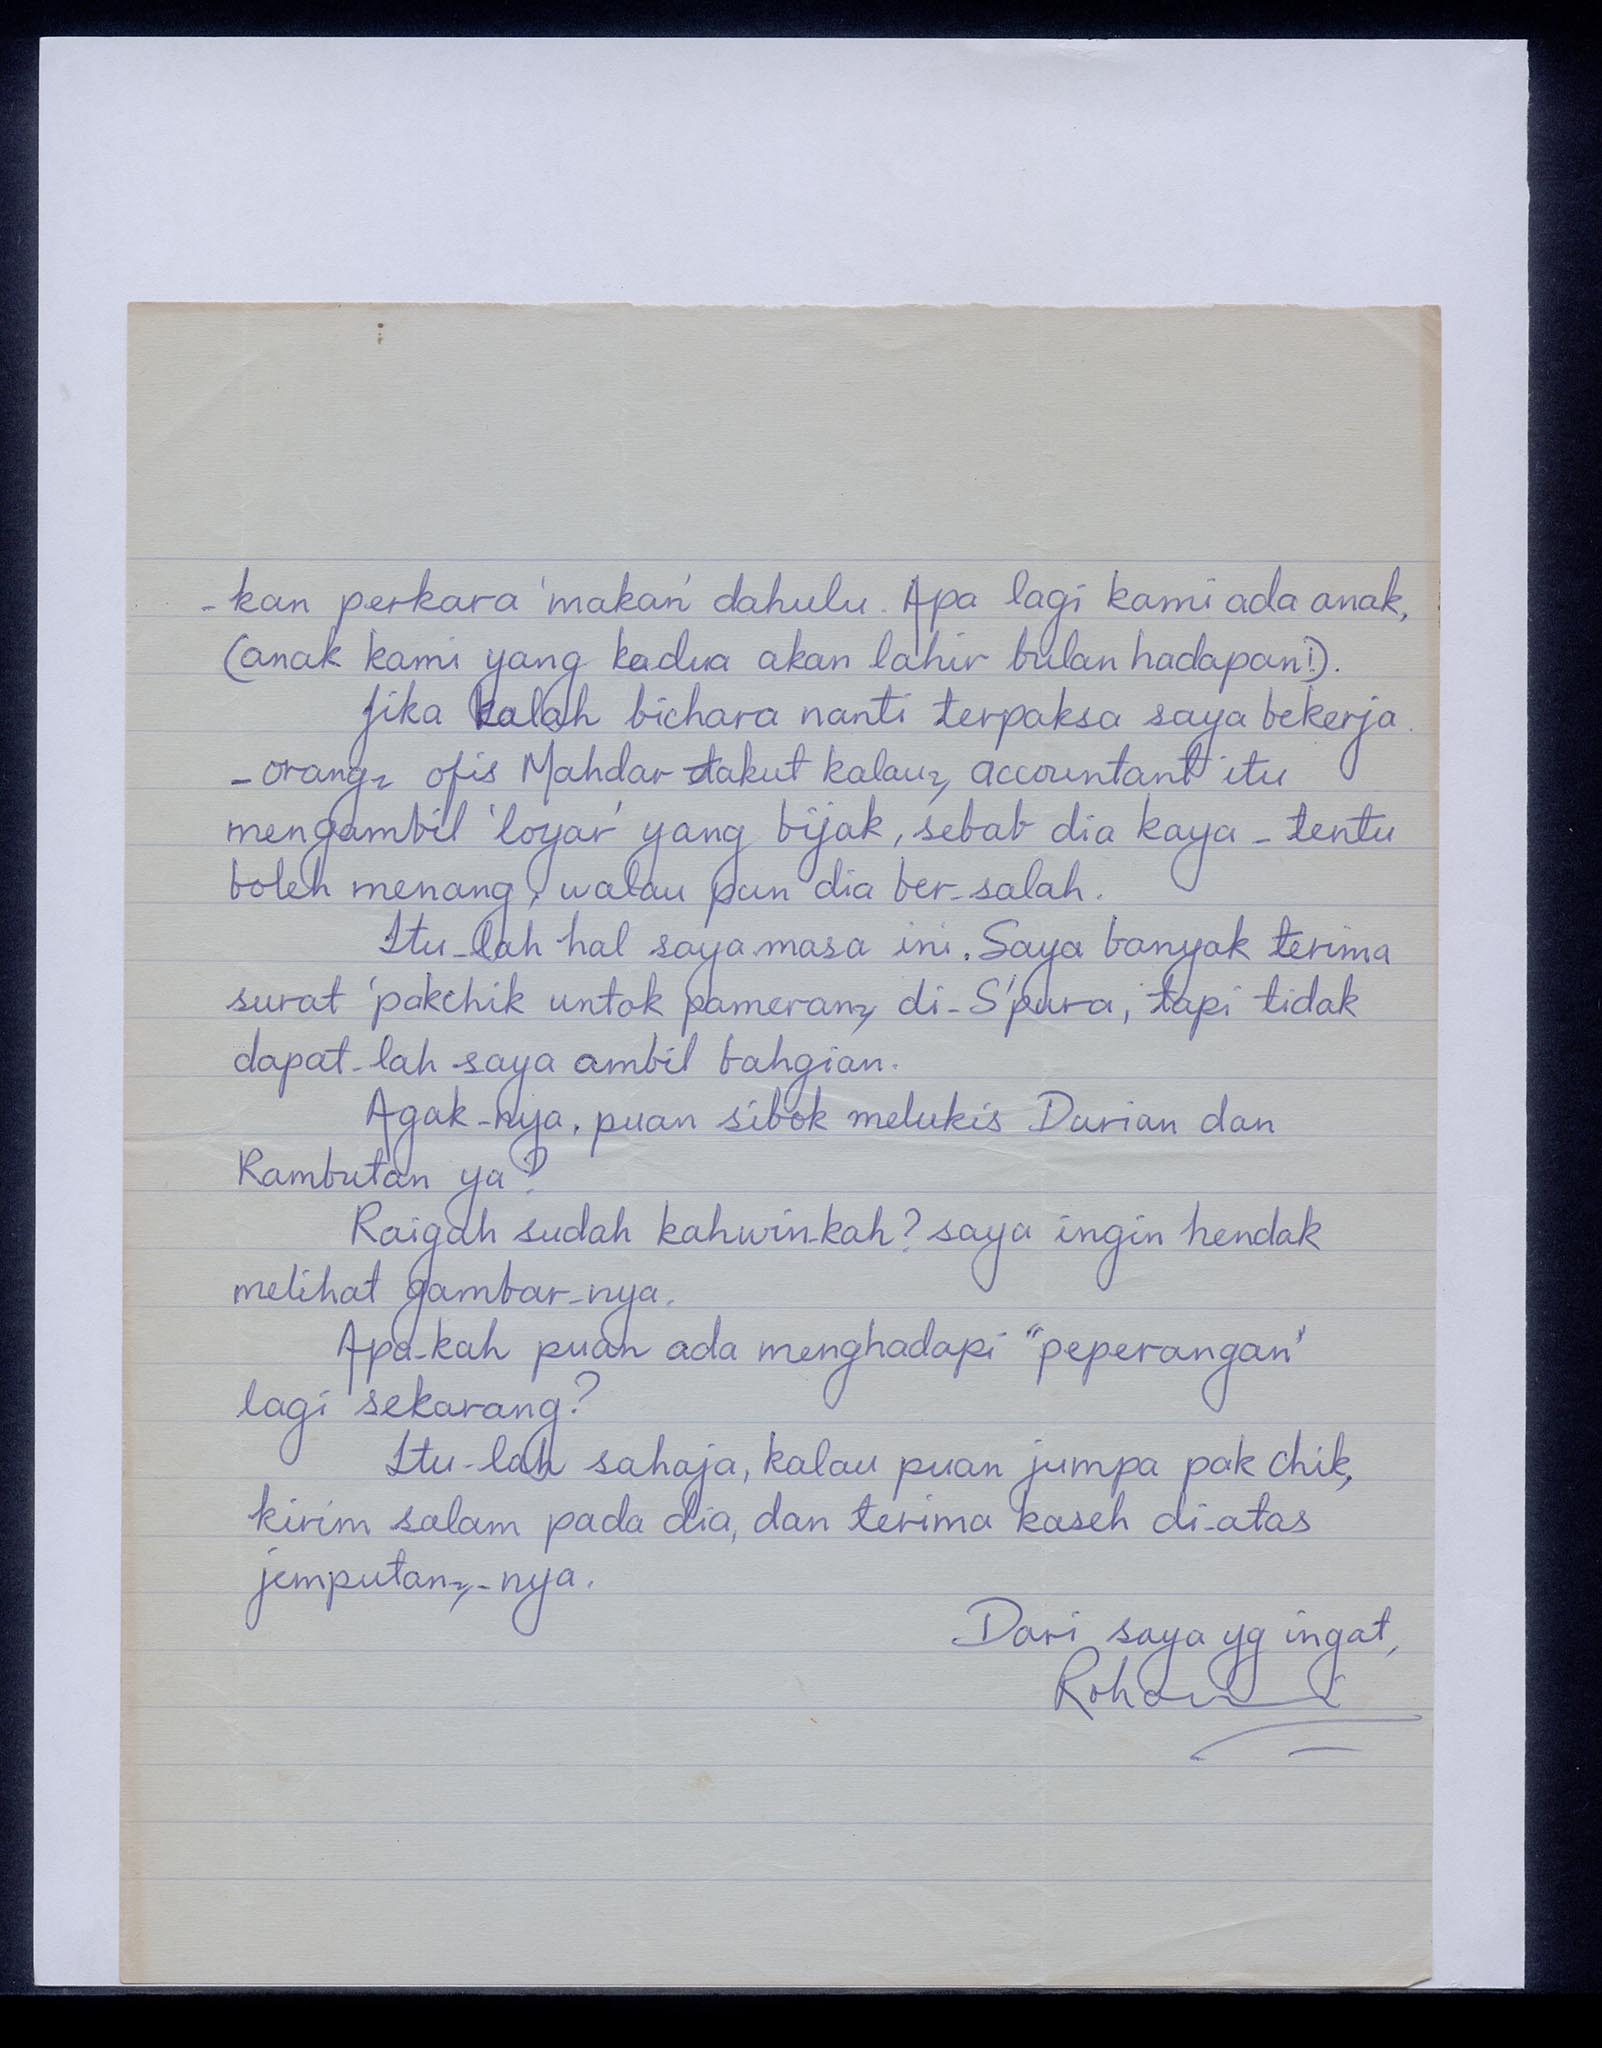 -kan perkara 'makan' dahulu. Apa lagi kami ada anak,
(anak kami yang kadua akan lahir bulan hadapan!).
Jika kalah bichara nanti terpaksa saya bekerja
- orang2 ofis Mahdar takut kalau2 accountant itu
mengambil 'loyar' yang bijak, sebab dia kaya - tentu
boleh menang, walau pun dia ber-salah.
Itu-lah hal saya masa ini. Saya banyak terima
surat 'pakchik untok pameran2 di-S'pura, tapi tidak
dapat-lah saya ambil bahgian.
Agak-nya, puan sibok melukis Durian dan
Rambutan ya?
Raigah sudah kahwin-kah? saya ingin hendak
melihat gambar-nya.
Apa-kah puan ada menghadapi "peperangan"
lagi sekarang?
Itu-lah sahaja, kalau puan jumpa pak chik,
kirim salam pada dia, dan terima kaseh di-atas
jemputan2-nya.
Dari saya yg ingat,